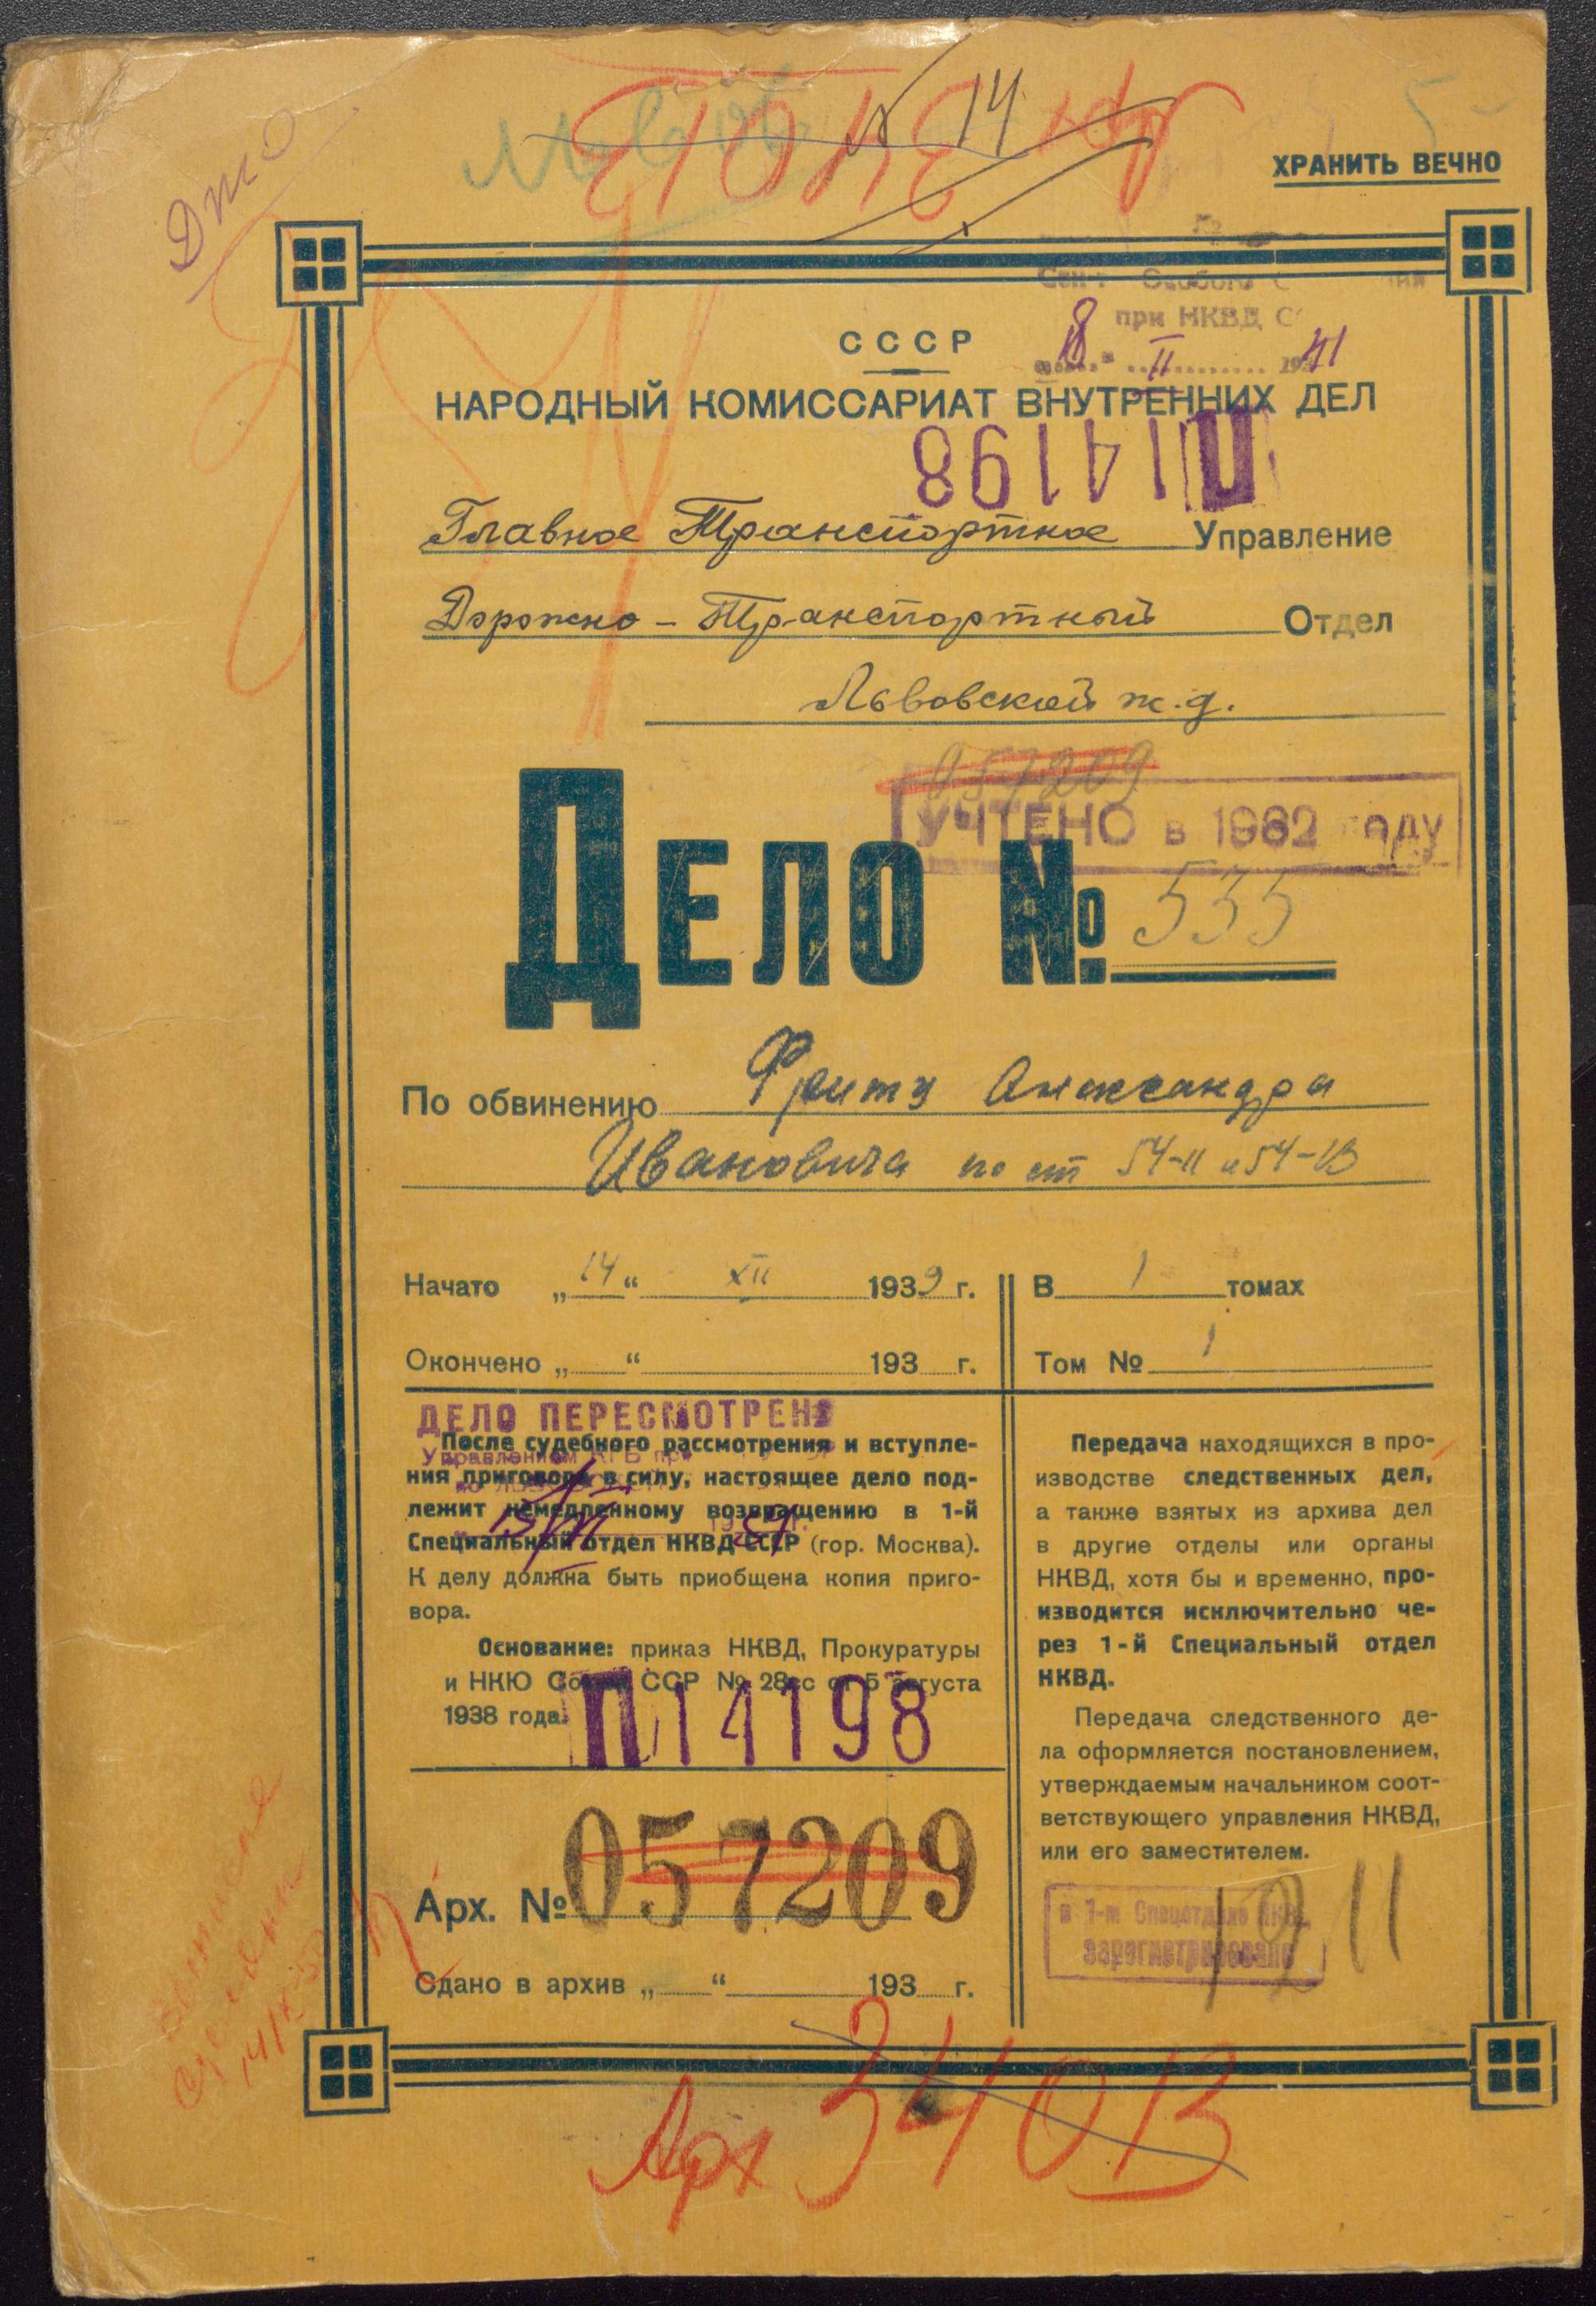 N 14
ХРАНИТЬ ВЕЧНО
ДТО
СССР
при НКВД
8 II 1941
НАРОДНЫЙ КОМИССАРИАТ ВНУТРЕННИХ ДЕЛ
П 14198
Главное Транспортное Управление
Дорожно-Транспортный Отдел
Львовской ж.д.
057209
УЧТЕНО в 1962 году
ДЕЛО № 535
По обвинению Александра
Ивановича по ст 54-11 и 54-13
Начато „14“ XII 1939 г.
Окончено „ “ 193 г.
В 1 томах
Том № 1
ДЕЛО ПЕРЕСМОТРЕНО
Управлением КГБ при
После судебного рассмотрения и вступле-
ния приговора в силу, настоящее дело под-
лежит немедленному возвращению в 1-й
Специальный отдел НКВД СССР (гор. Москва).
К делу должна быть приобщена копия приго-
вора.
Основание: приказ НКВД, Прокуратуры
и НКЮ Союза ССР № 28сс от 5 августа
1938 года.
П 14198
Арх. № 057209
Сдано в архив „ “ 193 г.
Передача находящихся в про-
изводстве следственных дел,
а также взятых из архива дел
в другие отделы или органы
НКВД, хотя бы и временно, про-
изводится исключительно че-
рез 1-й Специальный отдел
НКВД.
Передача следственного де-
ла оформляется постановлением,
утверждаемым начальником соот-
ветствующего управления НКВД,
или его заместителем.
в 1-м Спецотделе НКВД
зарегистрировано
Арх 34013